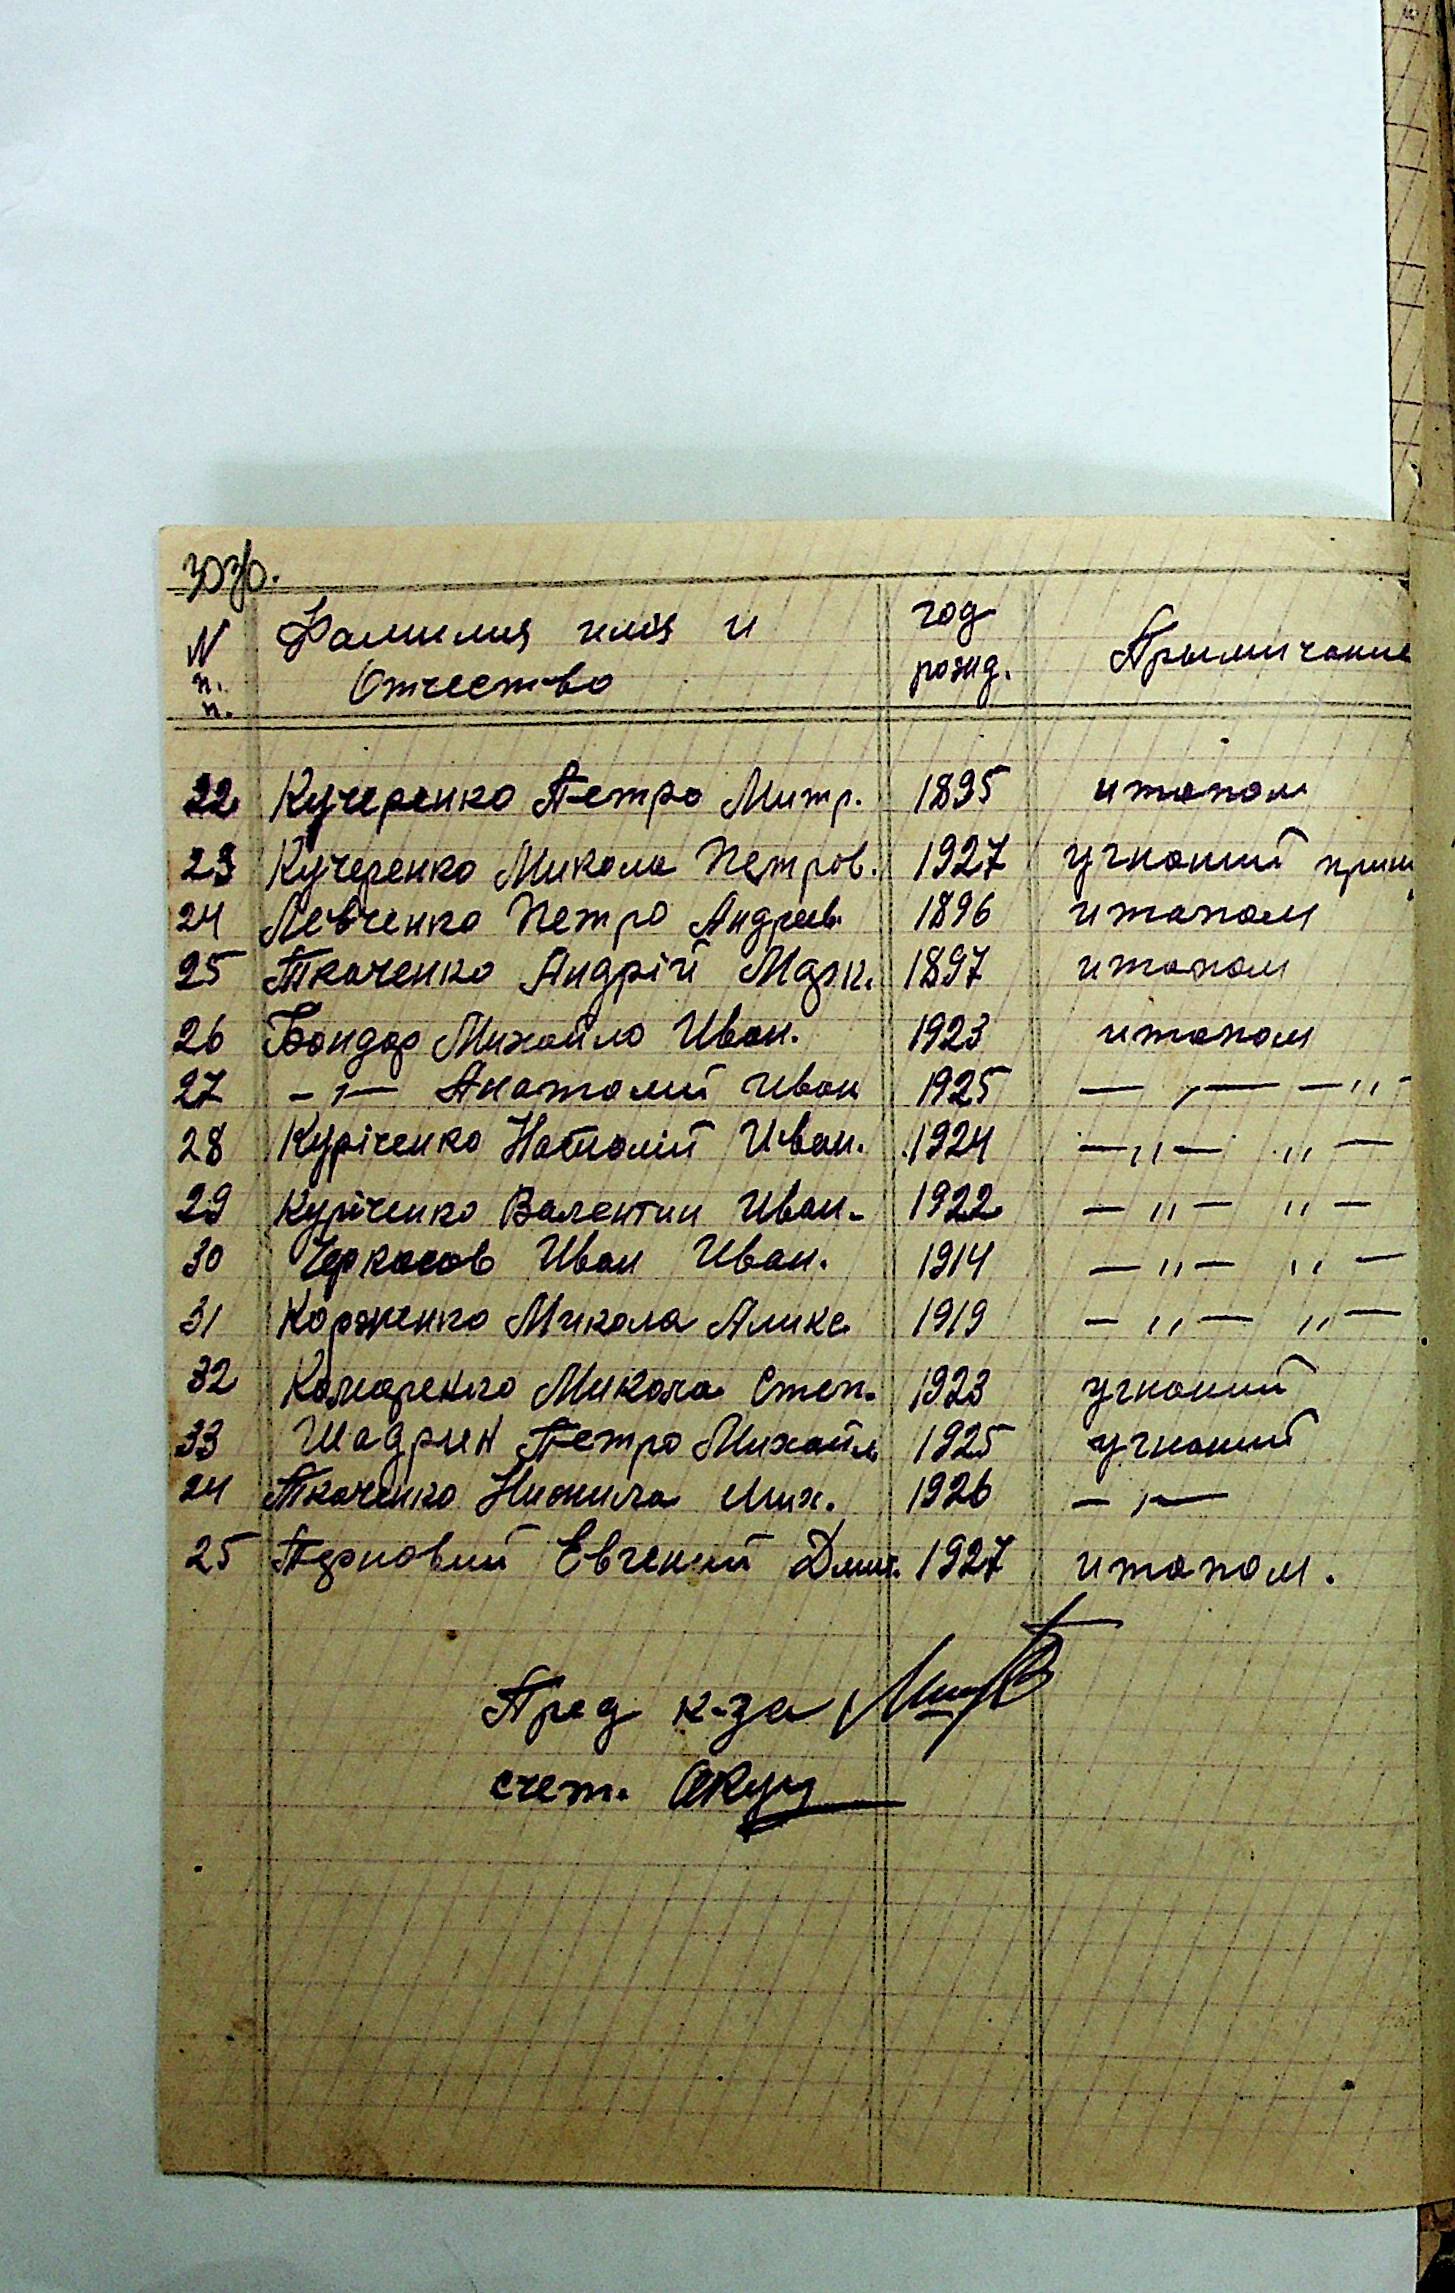 303б.
N п. п. Фамилия имя и Отчество год рожд. Прымичание
22 Кучеренко Петро Митр. 1895 итапом
23 Кучеренко Микола Петров. 1927 угнаний
24 Левченко Петро Андреев 1896 итапом
25 Ткаченко Андрій 1897 итапом
26 Бондар Михайло Иван. 1923 итапом
27 -〃- Анатолий Иван 1925 — 〃 — — 〃 -
28 Куріченко Натолій Иван. 1924 — 〃 — 〃 —
29 Куріченко Валентин Иван. 1922 — 〃 — 〃 —
30 Черкасов Иван Иван. 1914 — 〃 — 〃 —
31 Корженко Микола Аликс. 1919 — 〃 — 〃 —
32 Комаренко Микола Степ. 1923 угнаний
33 Шадрин Петро Михайл 1925 угнаний
24 Ткаченко Мих. 1926 — 〃 —
25 Евгений Дмит. 1927 итапом.
Пред к-за
счет.